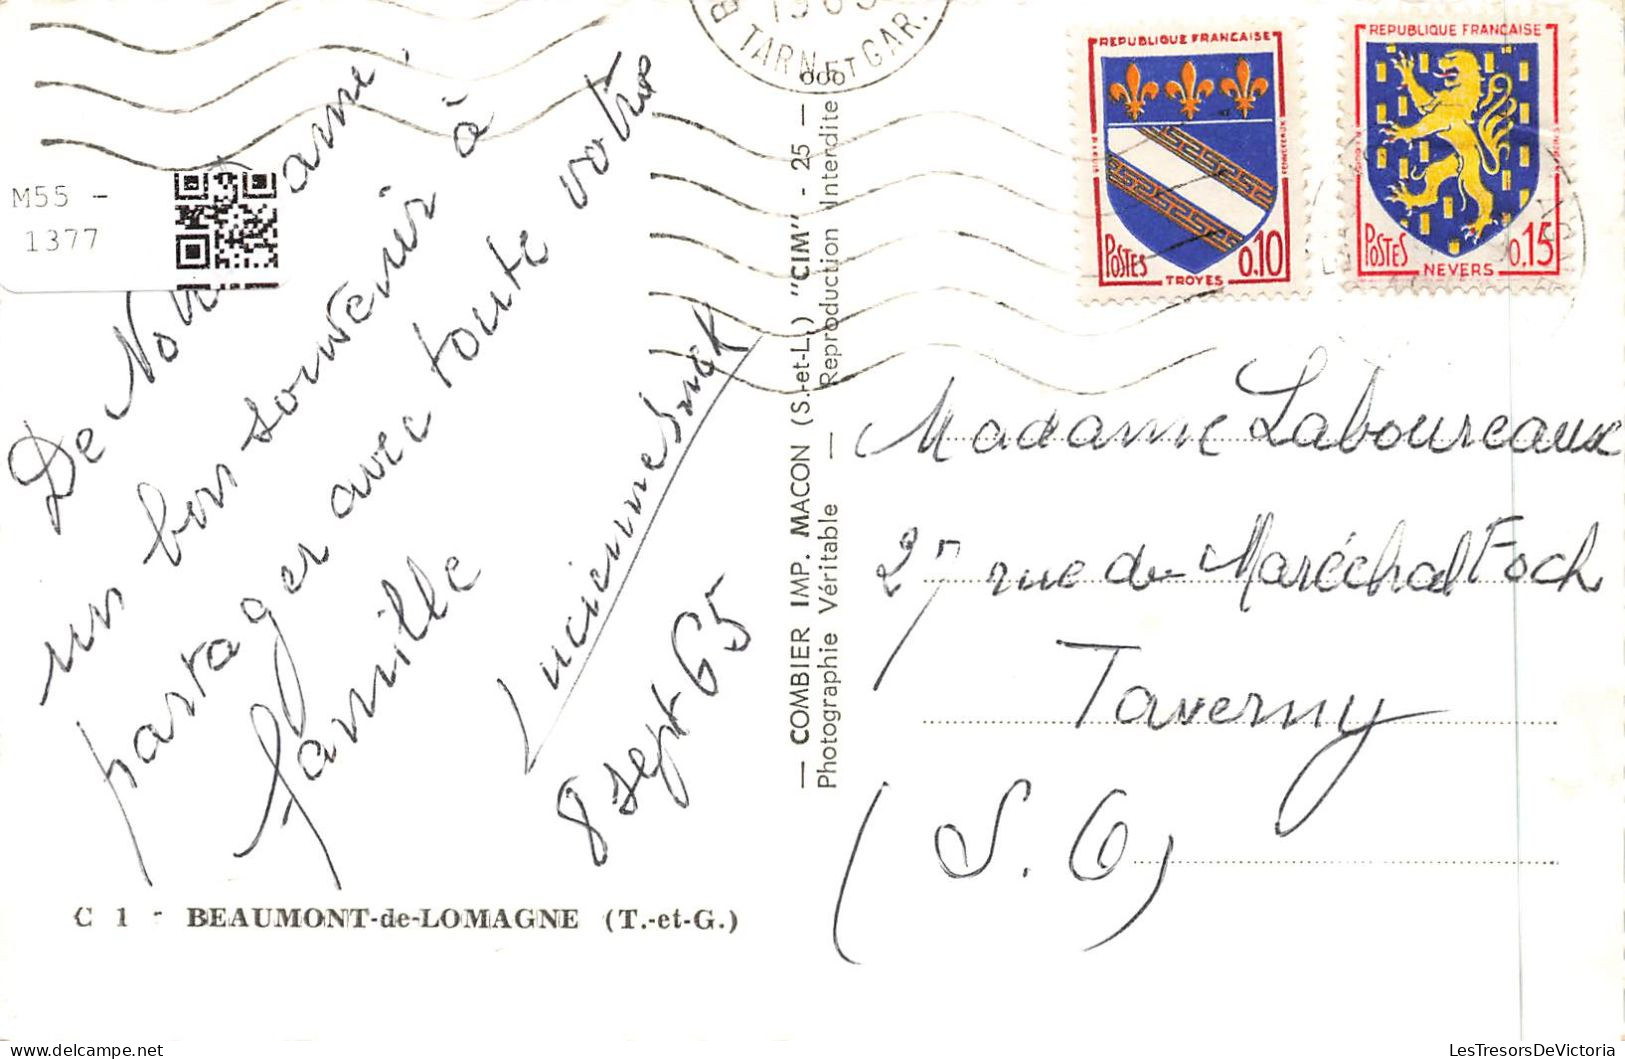 M55 -
1377
1965
TARN ET GAR.
REPUBLIQUE FRANCAISE
POSTES
0.10
TROYES
REPUBLIQUE FRANCAISE
POSTES
0.15
NEVERS
De
un bon souvenir à
partager avec toute votre
famille
Lucienne
8 sept 65
— COMBIER IMP. MACON (S.-et-L.) "CIM" - 25 —
Photographie Véritable — Reproduction Interdite
Madame Laboureaux
27 rue du Maréchal Foch
Taverny
(S. O)
C 1 - BEAUMONT-de-LOMAGNE (T.-et-G.)
LesTresorsDeVictoria